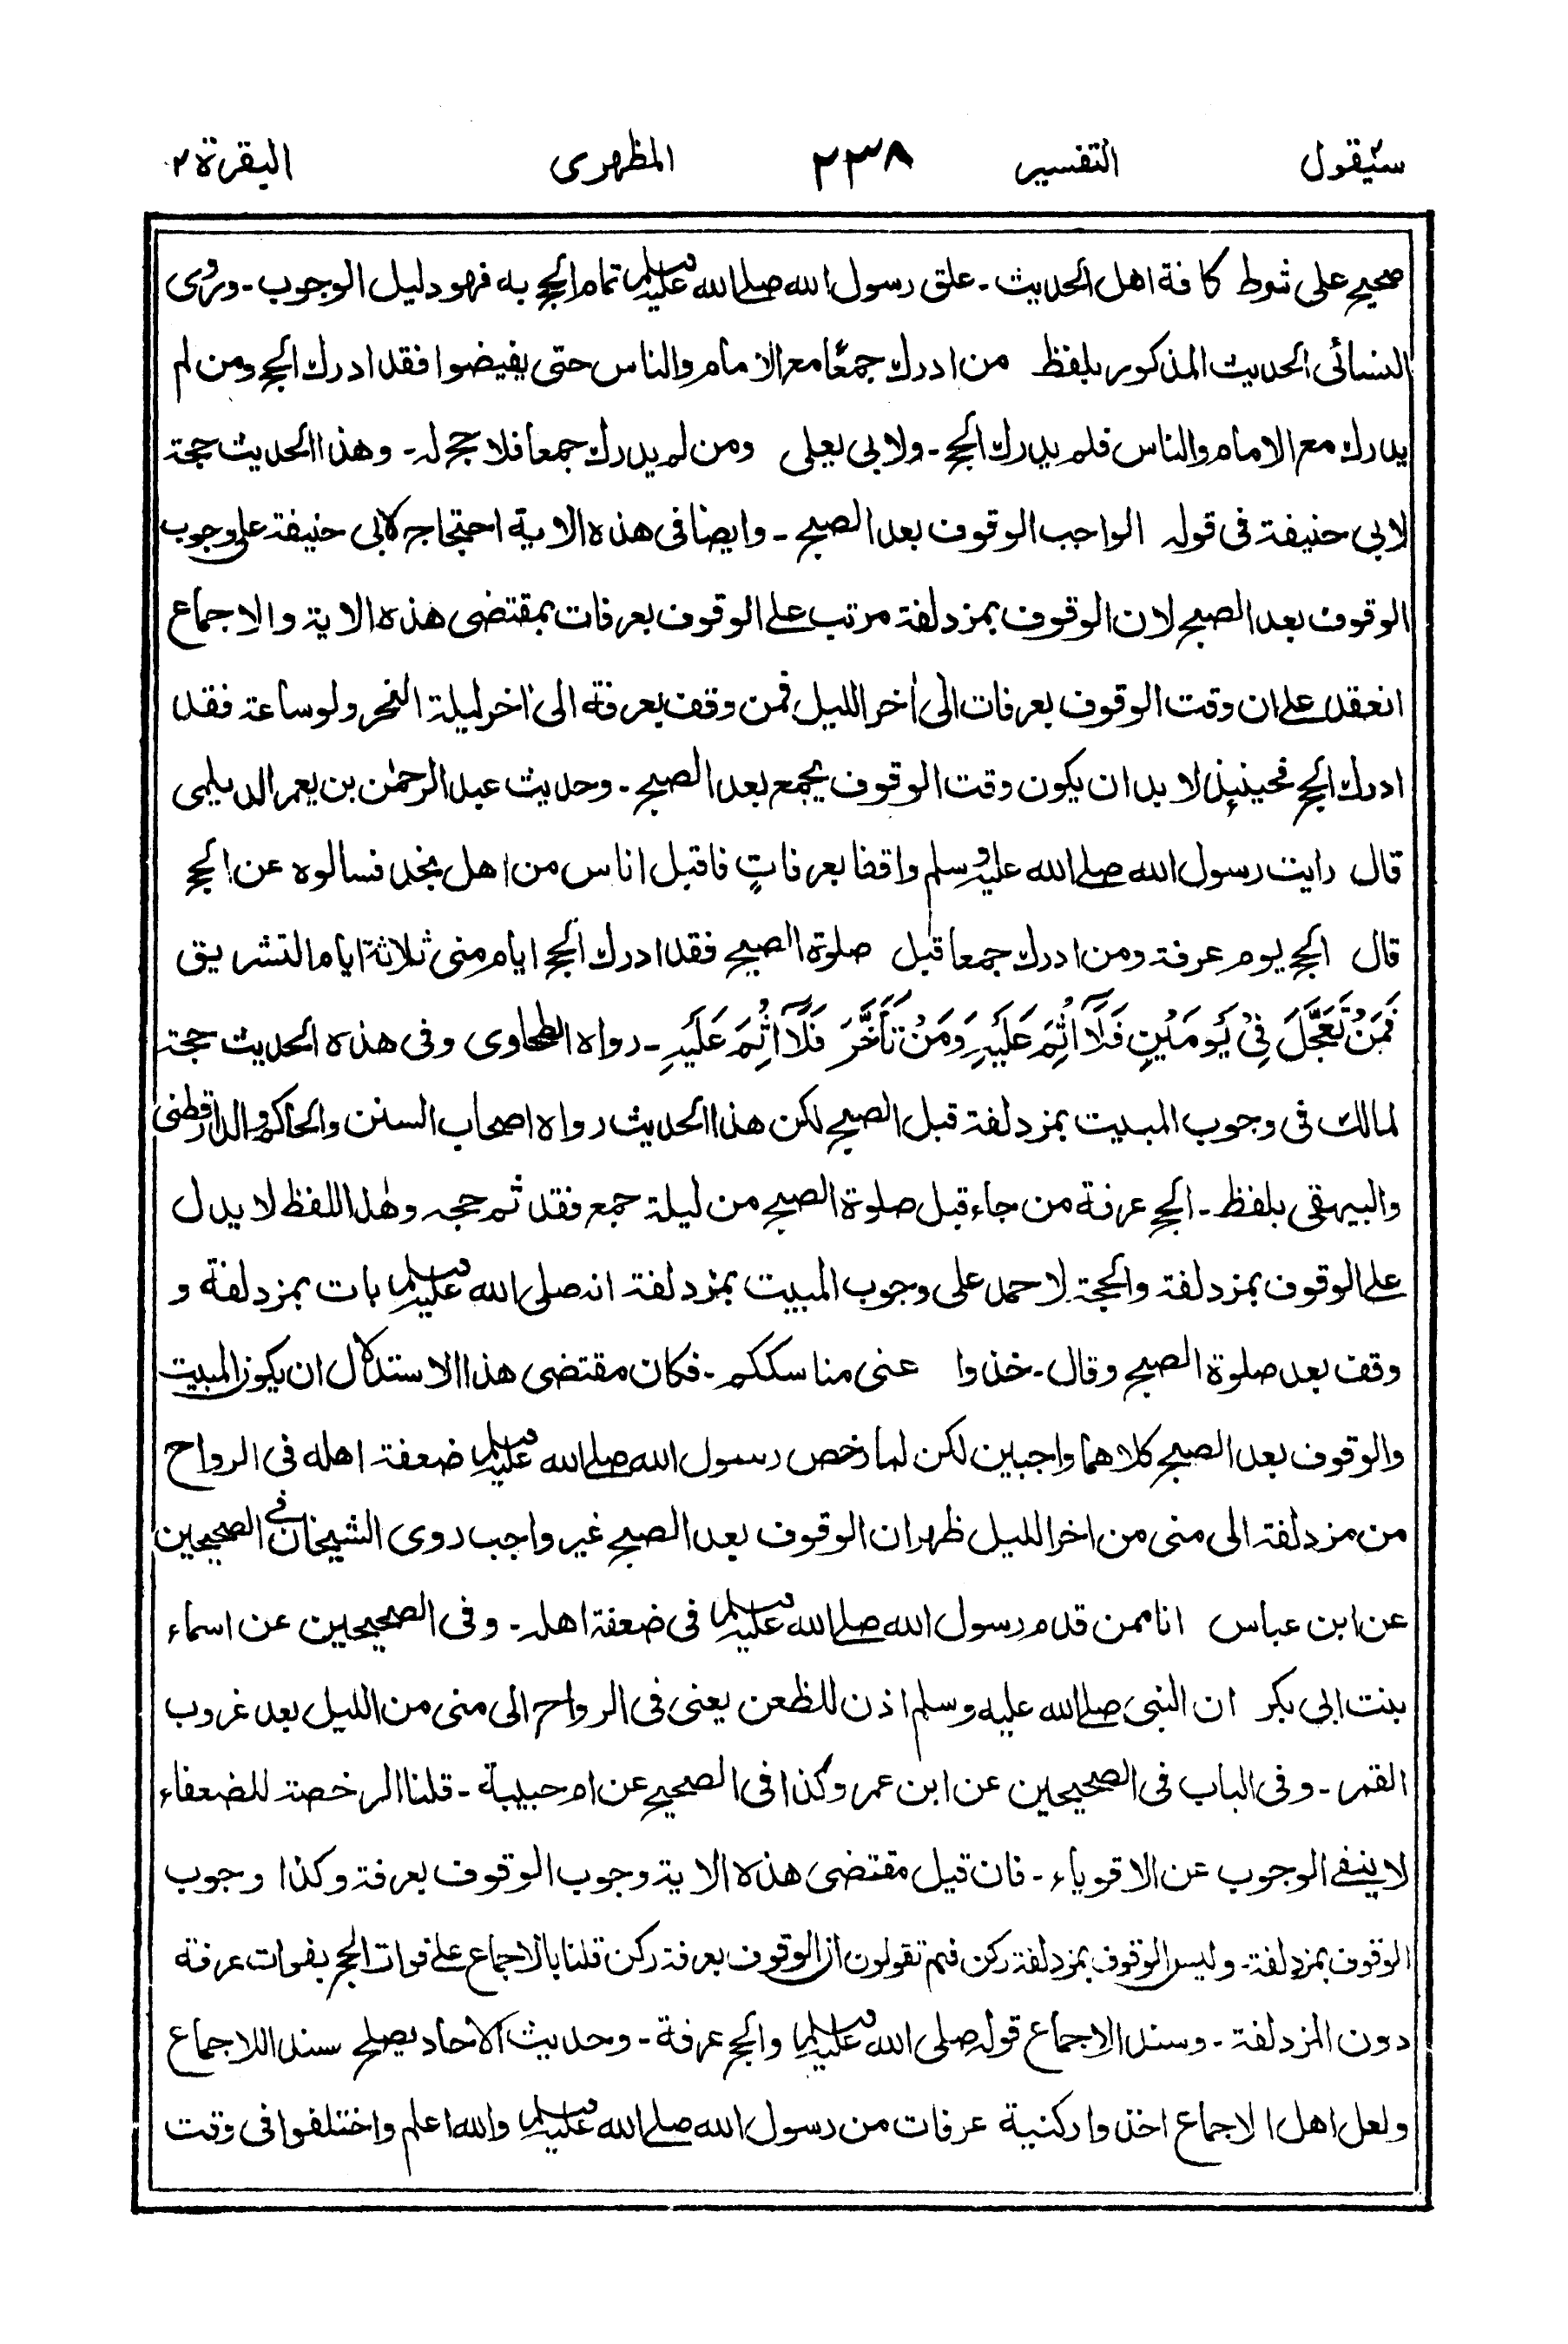 سيقول ٢ التفسير ٢٣٨ المظهرى البقرة ٢
صحيح على شرط كافة اهل الحديث - علق رسول الله صلى الله عليه وسلم تمام الحج به فهو دليل الوجوب - وروى
النسائى الحديث المذكور بلفظ من ادرك جمعًا مع الامام والناس حتى يفيضوا فقد ادرك الحج ومن لم
يدرك مع الامام والناس فلم يدرك الحج - ولابى يعلى ومن لم يدرك جمعا فلا حج له - وهذا الحديث حجة
لابى حنيفة فى قوله الواجب الوقوف بعد الصبح - وايضا فى هذه الاية احتجاج لابى حنيفة على وجوب
الوقوف بعد الصبح لان الوقوف بمزدلفة مرتب على الوقوف بعرفات بمقتضى هذه الاية والاجماع
انعقد على ان وقت الوقوف بعرفات الى اٰخر الليل فمن وقف بعرفة الى اٰخر ليلة النحر ولو ساعة فقد
ادرك الحج فحينئذ لا بد ان يكون وقت الوقوف بجمع بعد الصبح - وحديث عبد الرحمٰن بن يعمر الديلمى
قال رايت رسول الله صلى الله عليه وسلم واقفا بعرفاتٍ فاقبل اناس من اهل نجد فسالوه عن الحج
قال الحج يوم عرفة ومن ادرك جمعا قبل صلوة الصبح فقد ادرك الحج ايام منى ثلاثة ايام التشريق
فَمَنْ تَعَجَّلَ فِيْ يَوْمَيْنِ فَلَآ اِثْمَ عَلَيْهِ وَمَنْ تَاَخَّرَ فَلَآ اِثْمَ عَلَيْهِ - رواه الطحاوى وفى هذه الحديث حجة
لمالك فى وجوب المبيت بمزدلفة قبل الصبح لكن هذا الحديث رواه اصحاب السنن والحاكم والدارقطنى
والبيهقى بلفظ - الحج عرفة من جاء قبل صلوة الصبح من ليلة جمع فقد تم حجه وهٰذا اللفظ لا يدل
على الوقوف بمزدلفة والحجة لاحمد على وجوب المبيت بمزدلفة انه صلى الله عليه وسلم بات بمزدلفة و
وقف بعد صلوة الصبح وقال - خذوا عنى مناسككم - فكان مقتضى هذا الاستدلال ان يكون المبيت
والوقوف بعد الصبح كلاهما واجبين لكن لما رخص رسول الله صلى الله عليه وسلم ضعفة اهله فى الرواح
من مزدلفة الى منى من اخر الليل ظهر ان الوقوف بعد الصبح غير واجب روى الشيخان فى الصحيحين
عن ابن عباس انا ممن قدم رسول الله صلى الله عليه وسلم فى ضعفة اهله - وفى الصحيحين عن اسماء
بنت ابى بكر ان النبى صلى الله عليه وسلم اذن للظعن يعنى فى الرواح الى منى من الليل بعد غروب
القمر - وفى الباب فى الصحيحين عن ابن عمر وكذا فى الصحيح عن ام حبيبة - قلنا الرخصة للضعفاء
لا ينفى الوجوب عن الاقوياء - فان قيل مقتضى هذه الاية وجوب الوقوف بعرفة وكذا وجوب
الوقوف بمزدلفة - وليس الوقوف بمزدلفة ركن فبم تقولون ان الوقوف بعرفة ركن قلنا بالاجماع على فوات الحج بفوات عرفة
دون المزدلفة - وسند الاجماع قوله صلى الله عليه وسلم والحج عرفة - وحديث الاحاد يصلح سندا للاجماع
ولعل اهل الاجماع اخذوا ركنية عرفات من رسول الله صلى الله عليه وسلم والله اعلم واختلفوا فى وقت